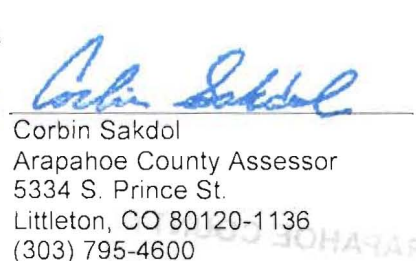 Corbin Sakdol
Corbin Sakdol
Arapahoe County Assessor
5334 S. Prince St.
Littleton, CO 80120-1136
(303) 795-4600
RAPAHOE COUNT